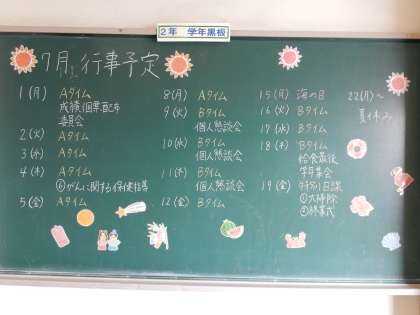 2年 学年黒板
7月 行事予定
1(月) Aタイム
成績個票配布
委員会
2(火) Aタイム
3(水) Aタイム
4(木) Aタイム
⑥がんに関する保健指導
5(金) Aタイム
8(月) Aタイム
9(火) Bタイム
個人懇談会
10(水) Bタイム
個人懇談会
11(木) Bタイム
個人懇談会
12(金) Bタイム
15(月) 海の日
16(火) Bタイム
17(水) Bタイム
18(木) Bタイム
給食最後
学年集会
19(金) 特別日課
①大掃除
②終業式
22(月)〜
夏休み